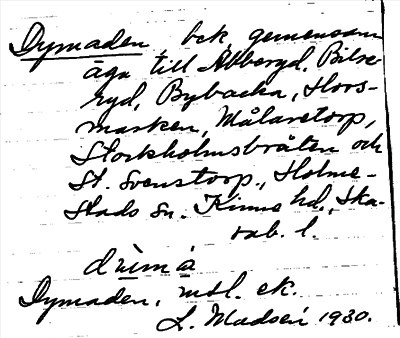 Dymaden, bck, gemensam
äga till Abberyd, Bilse-
ryd, Bybacka, Hors-
marken, Målaretorp,
Stockholmsbråten och
St. Svenstorp, Holme-
stads sn. Kinne hd., Ska-
rab. l.
drỳmȧ
Dymaden, msl. ek.
L. Madsén 1930.